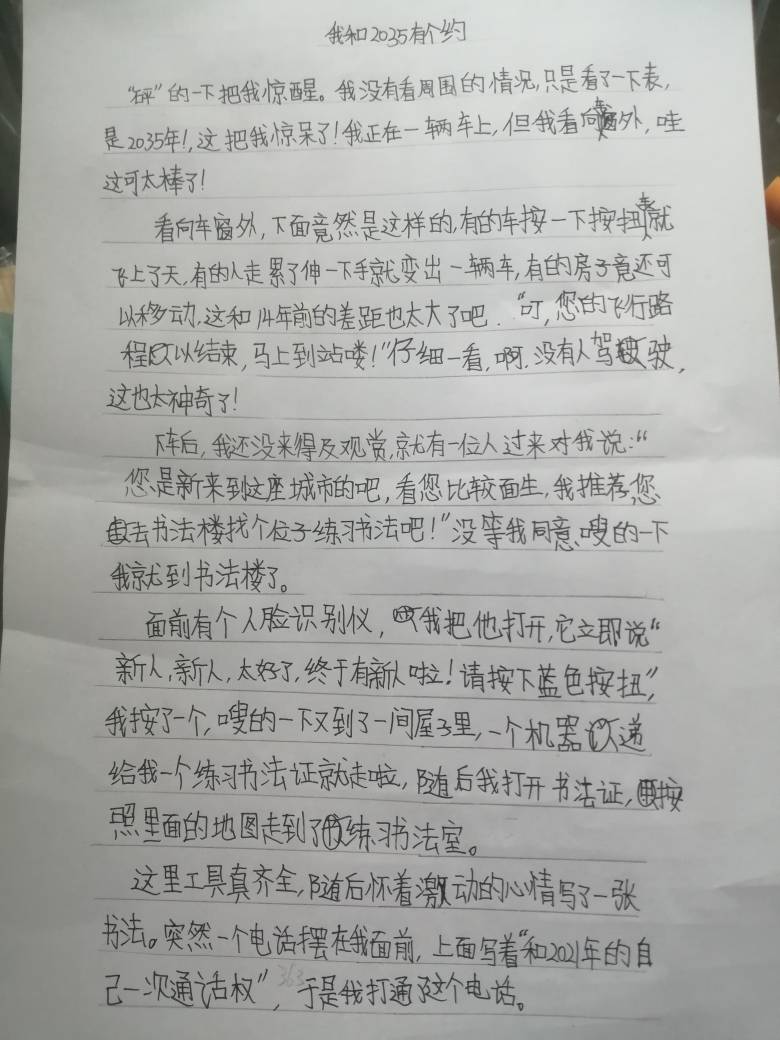 我和2035有个约
“砰”的一下把我惊醒。我没有看周围的情况,只是看了一下表,
是2035年!,这把我惊呆了!我正在一辆车上,但我看向窗外,哇
这可太棒了!
看向车窗外,下面竟然是这样的,有的车按一下按扭就
飞上了天,有的人走累了伸一下手就变出一辆车,有的房子竟还可
以移动,这和14年前的差距也太大了吧.“叮,您的飞行路
程以结束,马上到站喽!”仔细一看,啊,没有人驾驶,
这也太神奇了!
下车后,我还没来得及观赏,就有一位人过来对我说:“
您是新来到这座城市的吧,看您比较面生,我推荐您
去书法楼找个位子练习书法吧!”没等我同意,嗖的一下
我就到书法楼了。
面前有个人脸识别仪,我把他打开,它立即说“
新人,新人,太好了,终于有新人啦!请按下蓝色按扭”,
我按了一个,嗖的一下又到了一间屋子里,一个机器人递
给我一个练习书法证就走啦,随后我打开书法证,按
照里面的地图走到了练习书法室。
这里工具真齐全,随后怀着激动的心情写了一张
书法。突然一个电话摆在我面前,上面写着“和2021年的自
己一次通话权”,于是我打通了这个电话。
363